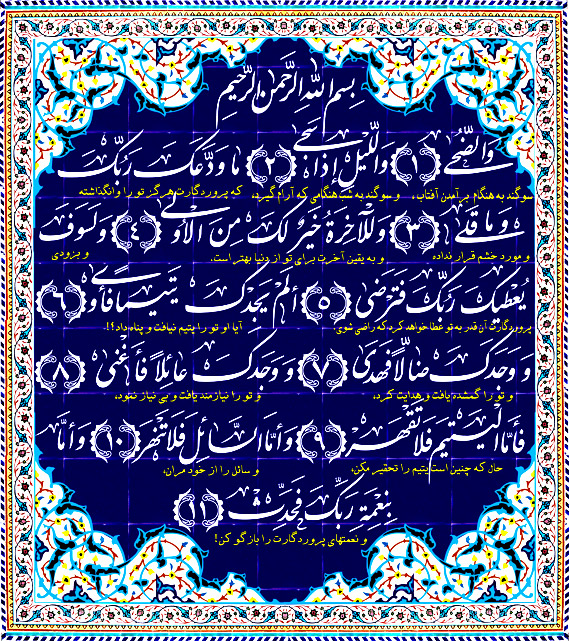 بِسْمِ اللهِ الرَّحْمٰنِ الرَّحِيمِ
وَالضُّحَى ﴿١﴾ وَاللَّيْلِ إِذَا سَجَى ﴿٢﴾ مَا وَدَّعَكَ رَبُّكَ
سوگند به هنگام برآمدن آفتاب، و سوگند به شب هنگامی که آرام گیرد، که پروردگارت هرگز تو را وانگذاشته
وَمَا قَلَى ﴿٣﴾ وَلَلْآخِرَةُ خَيْرٌ لَكَ مِنَ الْأُولَى ﴿٤﴾ وَلَسَوْفَ
و مورد خشم قرار نداده و به یقین آخرت برای تو از دنیا بهتر است. و بزودی
يُعْطِيكَ رَبُّكَ فَتَرْضَى ﴿٥﴾ أَلَمْ يَجِدْكَ يَتِيمًا فَآوَى ﴿٦﴾
پروردگارت آن قدر به تو عطا خواهد کرد که راضی شوی آیا او تو را یتیم نیافت و پناه داد؟!
وَوَجَدَكَ ضَالًّا فَهَدَى ﴿٧﴾ وَوَجَدَكَ عَائِلًا فَأَغْنَى ﴿٨﴾
و تو را گمشده یافت و هدایت کرد، و تو را نیازمند یافت و بی نیاز نمود،
فَأَمَّا الْيَتِيمَ فَلَا تَقْهَرْ ﴿٩﴾ وَأَمَّا السَّائِلَ فَلَا تَنْهَرْ ﴿١٠﴾ وَأَمَّا
حال که چنین است یتیم را تحقیر مکن، و سائل را از خود مران،
بِنِعْمَةِ رَبِّكَ فَحَدِّثْ ﴿١١﴾
و نعمتهای پروردگارت را بازگو کن!